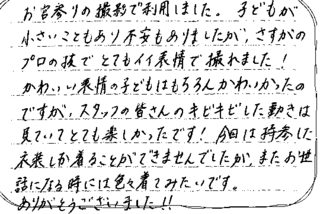 お宮参りの撮影で利用しました。子どもが
小さいこともあり不安もありましたが、さすがの
プロの技でとてもイイ表情で撮れました！
かわいい表情の子どもはもちろんかわいかったの
ですが、スタッフの皆さんのキビキビした動きは
見ていてとても楽しかったです！今回は持参した
衣装しか着ることができませんでしたが、またお世
話になる時には色々着てみたいです。
ありがとうございました!!